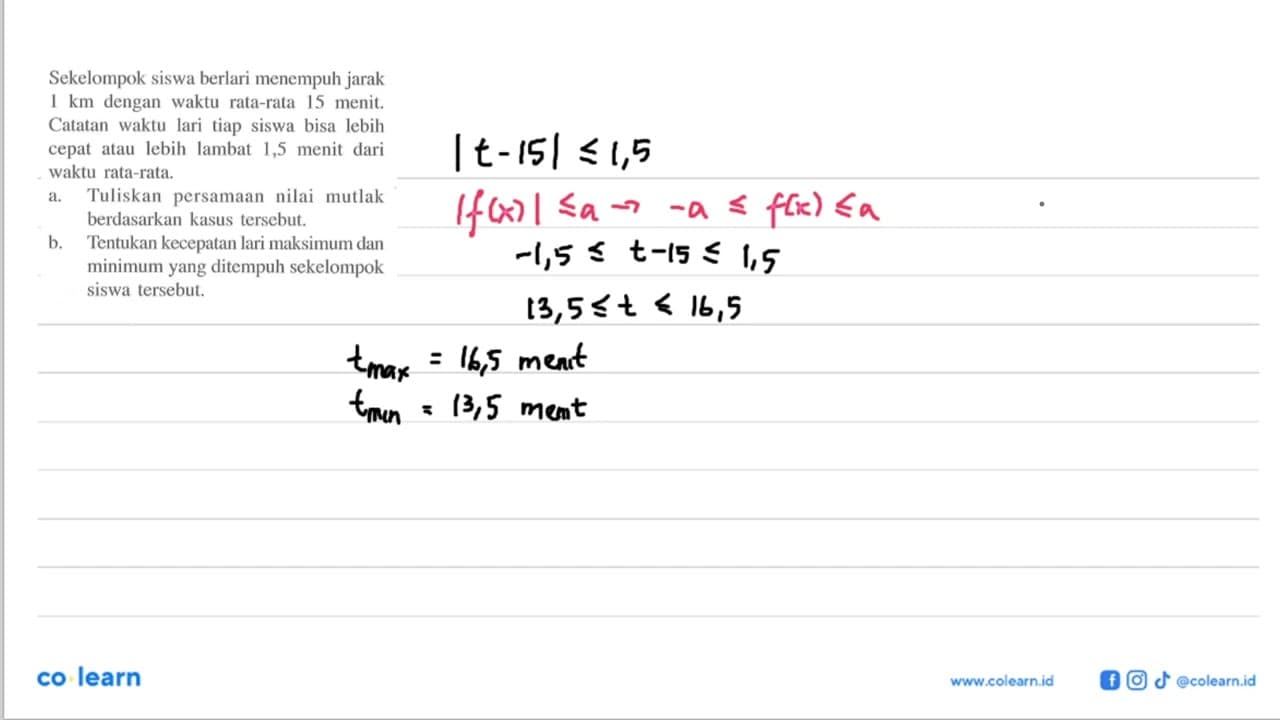 Sekelompok siswa berlari menempuh jarak
1 km dengan waktu rata-rata 15 menit.
Catatan waktu lari tiap siswa bisa lebih
cepat atau lebih lambat 1,5 menit dari
waktu rata-rata.
a. Tuliskan persamaan nilai mutlak
berdasarkan kasus tersebut.
b. Tentukan kecepatan lari maksimum dan
minimum yang ditempuh sekelompok
siswa tersebut.
|t-15| ≤ 1,5
|f(x)| ≤ a → -a ≤ f(x) ≤ a
-1,5 ≤ t-15 ≤ 1,5
13,5 ≤ t ≤ 16,5
tmax = 16,5 menit
tmin = 13,5 menit
co learn
www.colearn.id
@colearn.id